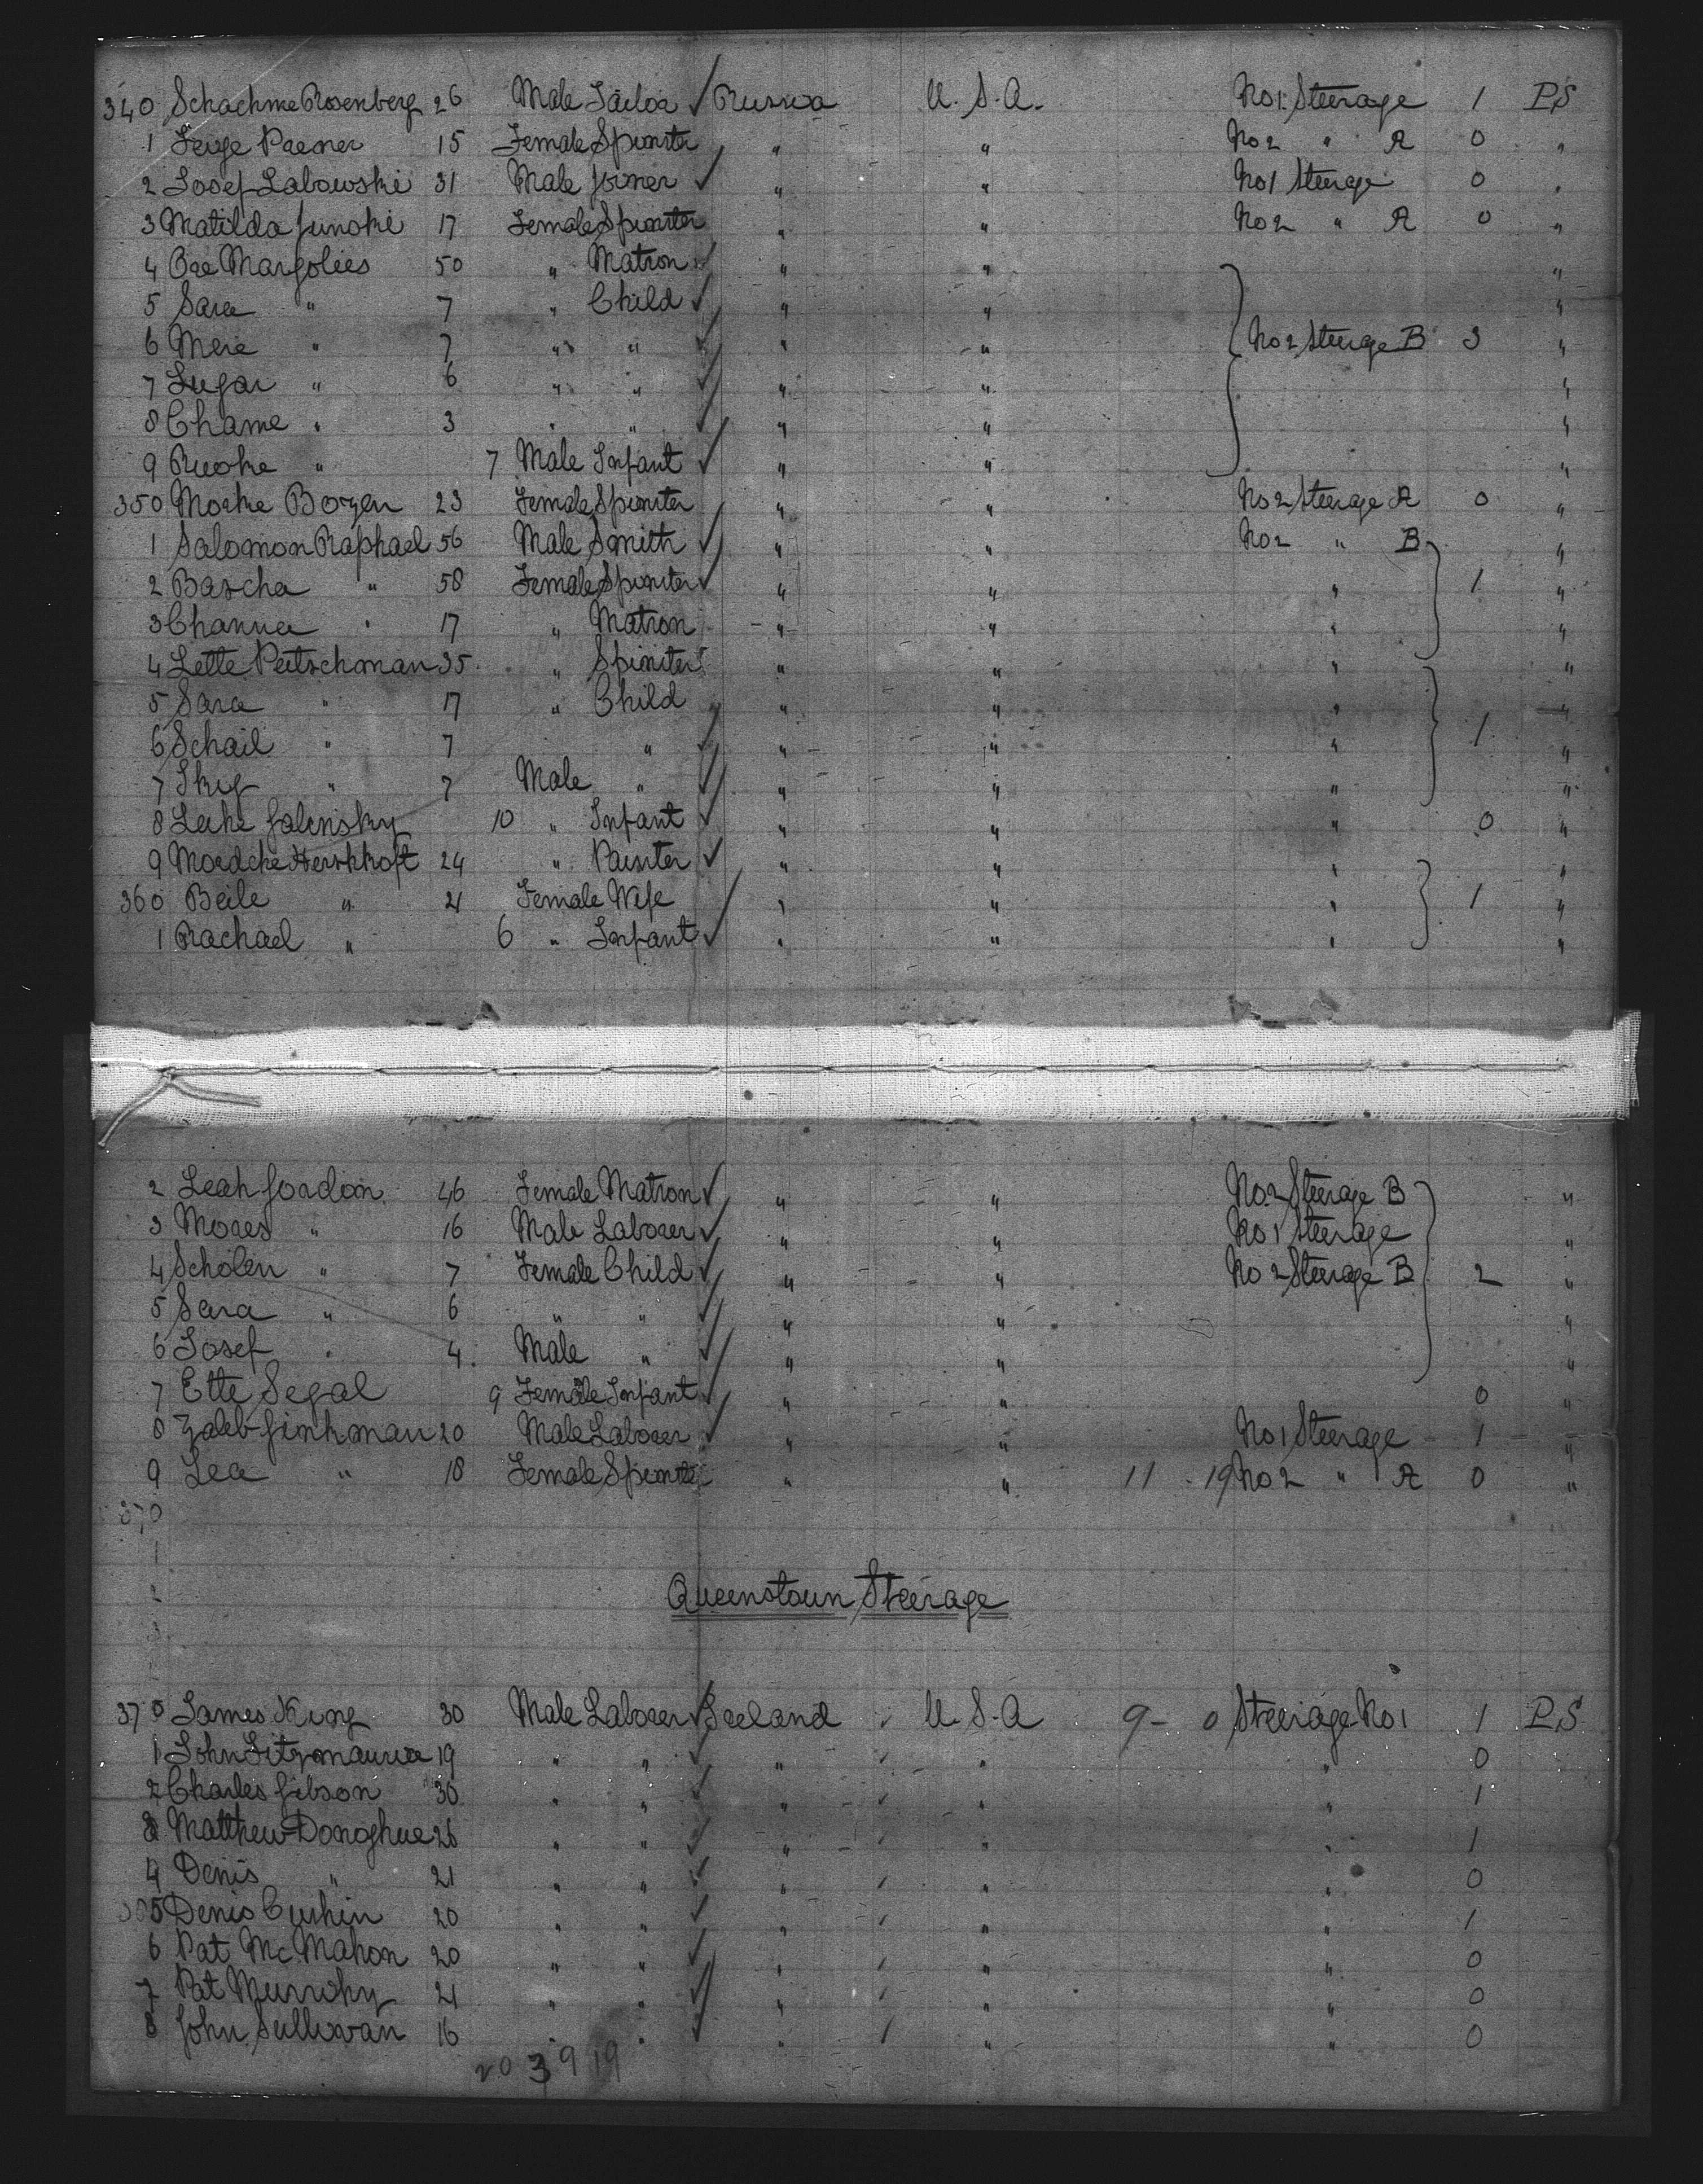 340 Schachme Rosenberg 26 Male Tailor ✓ Russia U.S.A. No1 Steerage 1 P.S
1 Feige Paener 15 Female Spinster " " No 2 " A 0 "
2 Josef Labowski 31 Male Joiner ✓ " " No1 Steerage 0 "
3 Matilda Junoki 17 Female Spinster " " No 2 " A 0 "
4 Margolies 50 " Matron ✓ " " "
5 Sara " 7 " Child ✓ " " "
6 Mere " 7 " " ✓ " " No 2 Steerage B 3 "
7 " 6 " " ✓ " " "
8 Chame " 3 " " ✓ " " "
9 Rucke " 7 Male Infant ✓ " " "
350 Morke Bozen 23 Female Spinster " " No 2 Steerage A 0 "
1 Salomon Raphael 56 Male Smith ✓ " " No 2 " B "
2 Bascha " 58 Female Spinster ✓ " " " 1 "
3 Channa " 17 " Matron " " " "
4 Lette Peitschman 35 " Spinster " " " "
5 Sara " 17 " Child " " " "
6 Schail " 7 " ✓ " " " 1 "
7 " 7 Male " ✓ " " " "
8 Leike Galinsky 10 " Infant ✓ " " " 0 "
9 Mordche Hershkoft 24 " Painter ✓ " " " "
360 Beile " 21 Female Wife " " " 1 "
1 Rachael " 6 " Infant ✓ " " " "
2 Leah Gordon 46 Female Matron ✓ " " No 2 Steerage B "
3 Moses " 16 Male Laborer ✓ " " No 1 Steerage "
4 Scholen " 7 Female Child ✓ " " No 2 Steerage B 2 "
5 Sara " 6 " " ✓ " " "
6 Josef " 4 Male " ✓ " " "
7 Ette Segal 9 Female Infant ✓ " " 0 "
8 Zaleb Ginkman 20 Male Laborer ✓ " " No 1 Steerage 1 "
9 Lea " 18 Female Spinster " " 11 - 19 No 2 " A 0 "
370
1
2
3
Queenstown Steerage
370 James King 30 Male Laborer ✓ Ireland ✓ U.S.A 9 - 0 Steerage No 1 1 P.S
1 John Fitzmaurice 19 " " ✓ " ✓ " " 0
2 Charles Gibson 30 " " ✓ " ✓ " " 1
3 Matthew Donoghue 26 " " ✓ " ✓ " " 1
4 Denis " 21 " " ✓ " ✓ " " 0
5 Denis Cushin 20 " " ✓ " ✓ " " 1
6 Pat Mc Mahon 20 " " ✓ " ✓ " " 0
7 Pat Murphy 21 " " ✓ " ✓ " " 0
8 John Sullivan 16 " " ✓ " ✓ " " 0
20 3 9 19